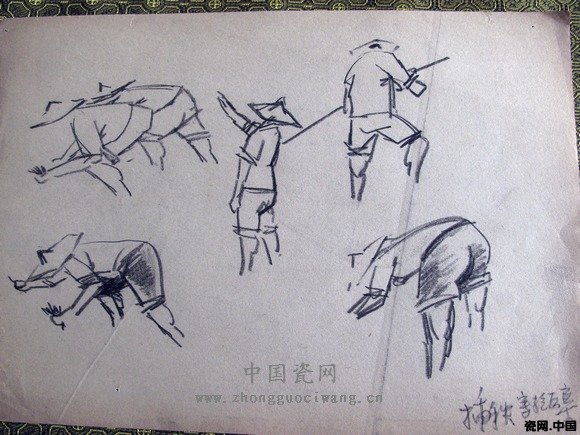 中国瓷网
www.zhongguociwang.cn
插秧
瓷网.中国